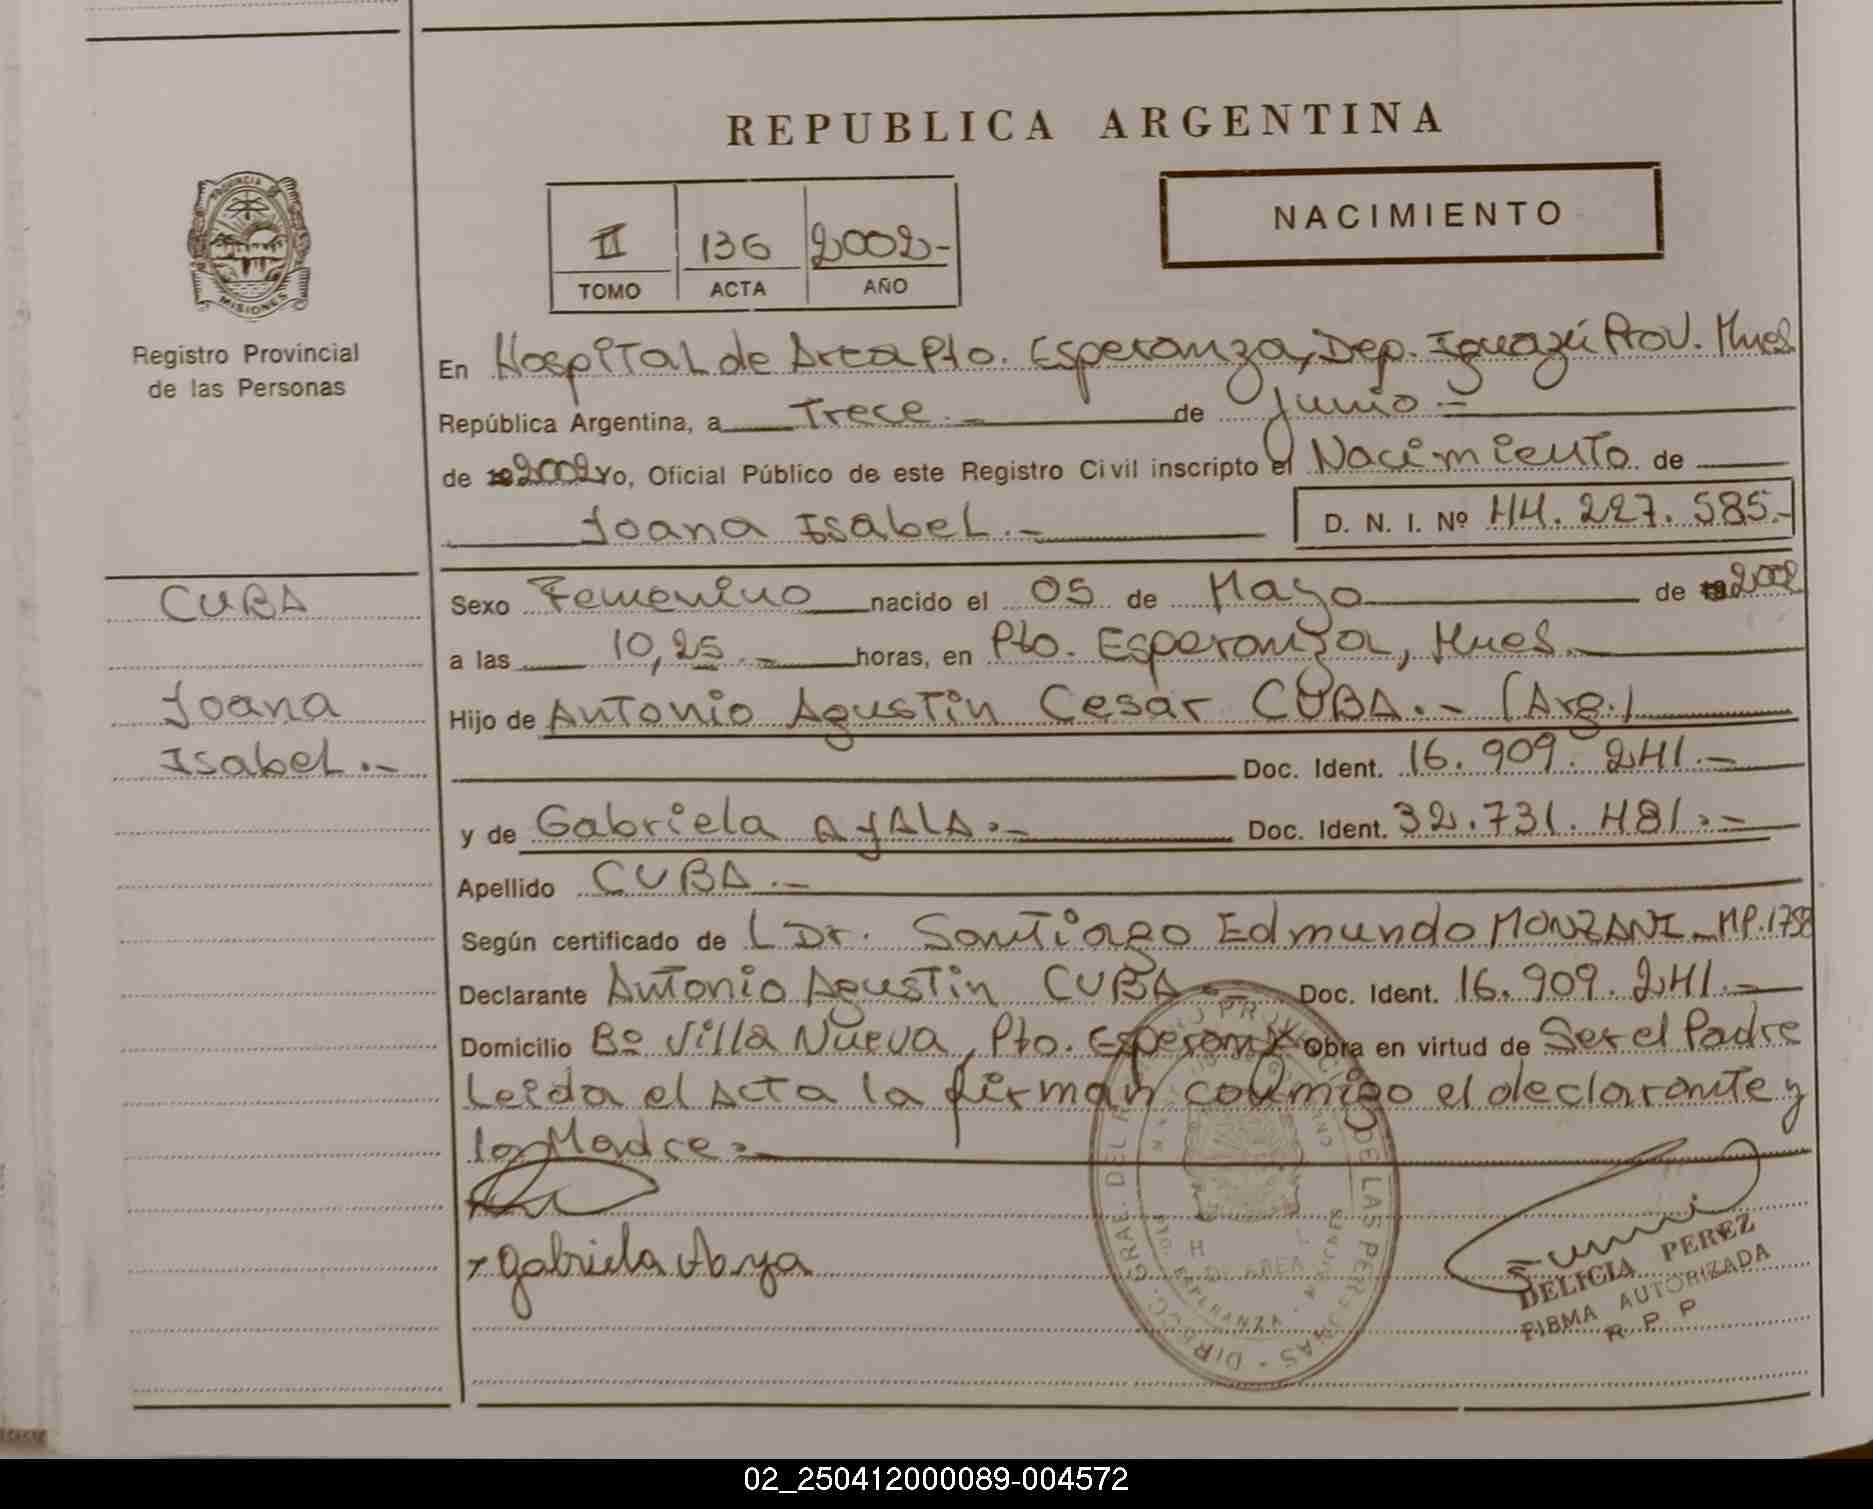 REPUBLICA ARGENTINA
NACIMIENTO
II 136 2002-
TOMO ACTA AÑO
PROVINCIA DE
MISIONES
Registro Provincial
de las Personas
En Hospital de Area Pto. Esperanza, Dep. Iguazú Prov. Mnes
República Argentina, a Trece.- de Junio.-
de 2002 Yo, Oficial Público de este Registro Civil inscripto el Nacimiento de
Joana Isabel.- D. N. I. Nº 44.227.585.-
CUBA
Joana
Isabel.-
Sexo Femenino nacido el 05 de Mayo de 2002
a las 10,25.- horas, en Pto. Esperanza, Mnes.
Hijo de Antonio Agustin Cesar CUBA.- (Arg.)
Doc. Ident. 16.909.241.-
y de Gabriela AyALA.- Doc. Ident. 32.731.481.-
Apellido CUBA.-
Según certificado de L Dr. Santiago Edmundo MONZANI-MP.1758
Declarante Antonio Agustin CUBA.- Doc. Ident. 16.909.241.-
Domicilio Bº Villa Nueva, Pto. Esperanza Obra en virtud de Ser el Padre
Leida el Acta la firman conmigo el declarante y
la Madre.
Gabriela Aya
DELICIA PEREZ
FIRMA AUTORIZADA
R. P. P
DE LAS PERSONAS - DIRECC. GRAL. DEL
DE AREA
ESPERANZA
02_250412000089-004572